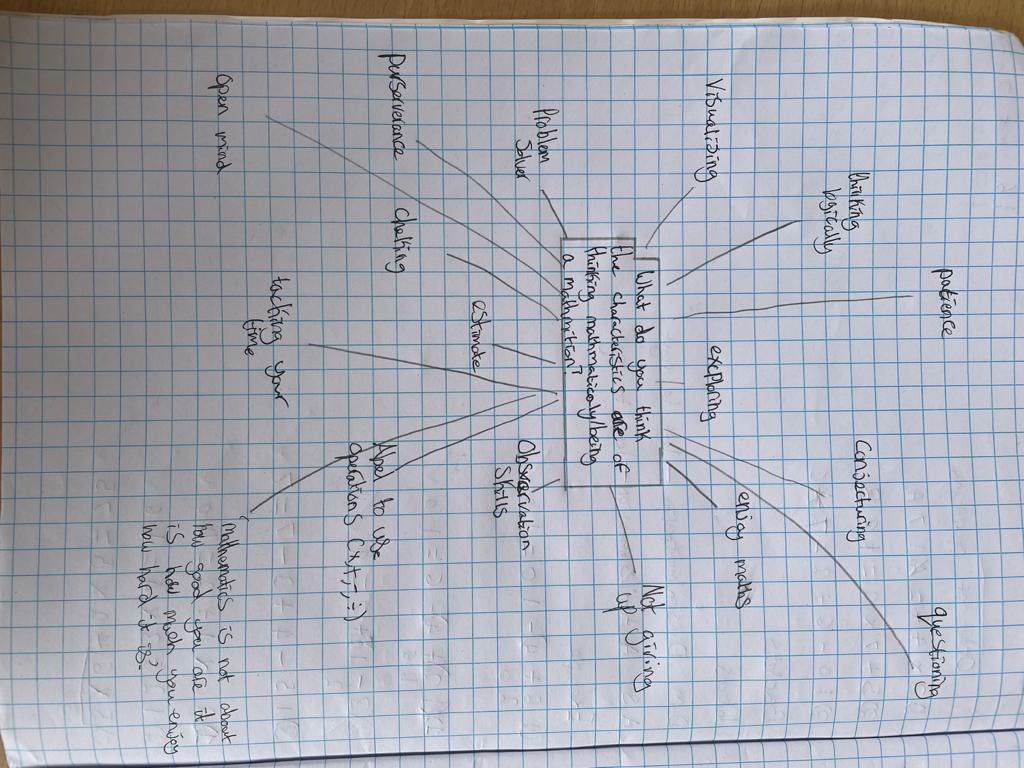 patience
questioning
thinking
logically
Conjecturing
Visualising
exploring
enjoy maths
What do you think
the characteristics are of
thinking mathmaticaly/being
a mathmition?
Not giving
up
Problem
Solver
Observation
Skills
estimate
Perserverance
cheking
Abel to use
operations (x,+,-,÷)
tacking your
time
open mind
"mathematics is not about
how good you are it
is how much you enjoy
how hard it is"